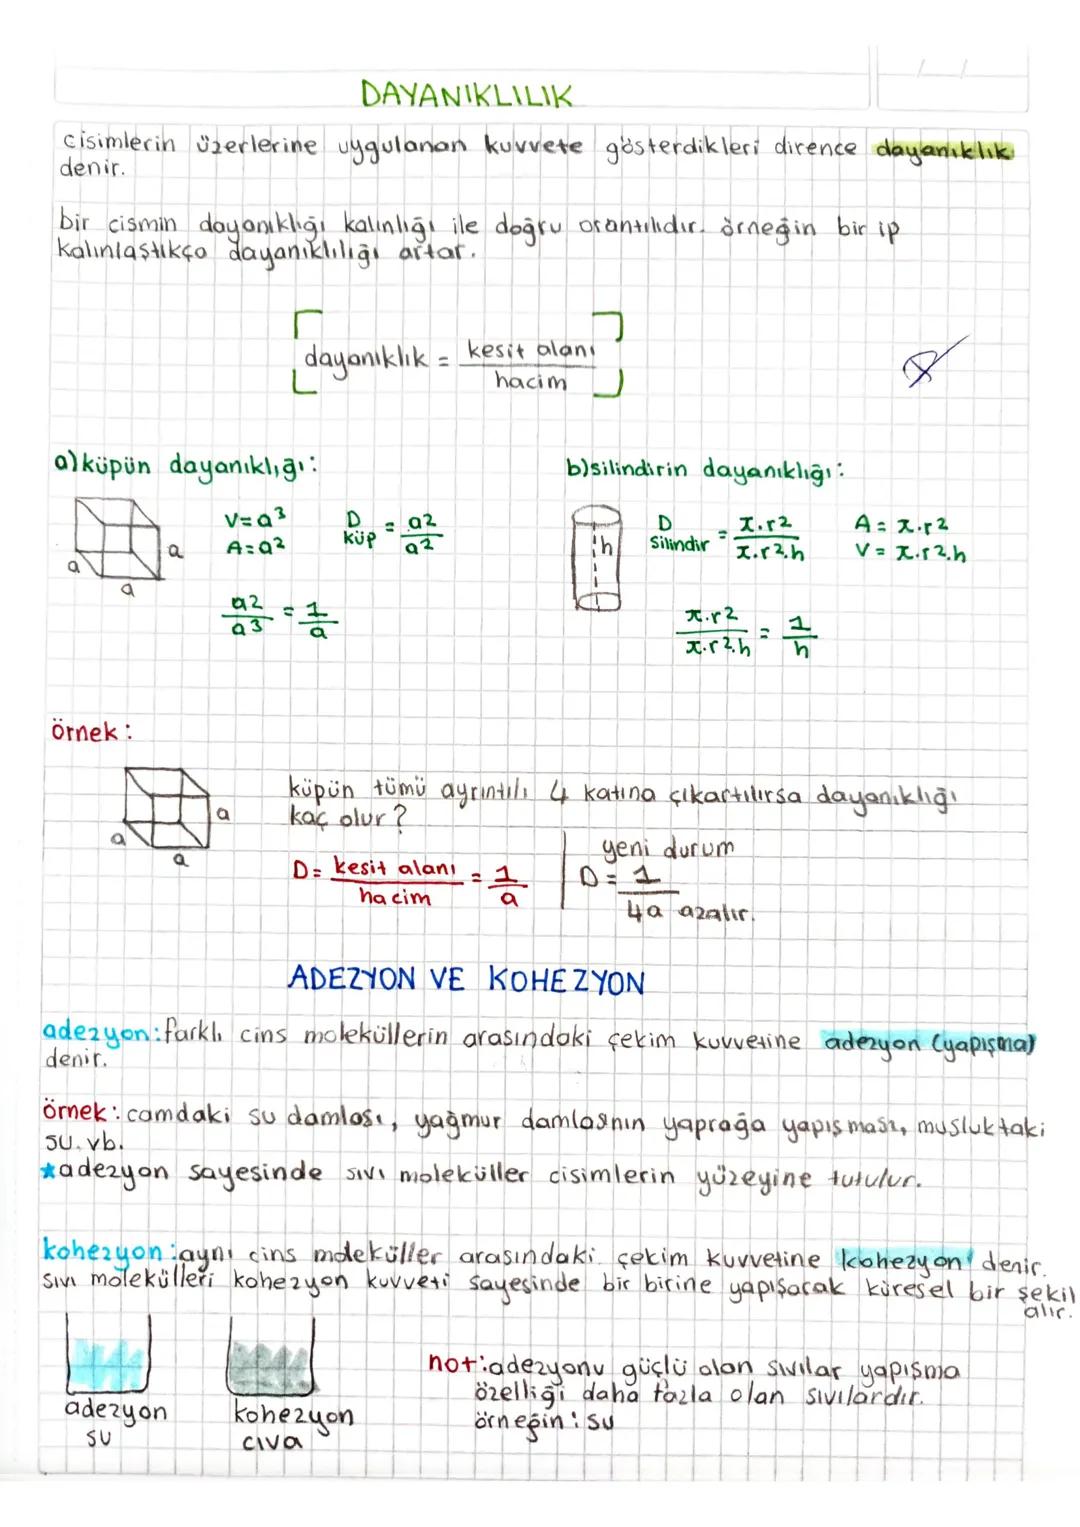 DAYANIKLILIK
cisimlerin üzerlerine uygulanan kuvvete gösterdikleri dirence dayanıklık
denir.
bir cismin dayanıklığı kalınlığı ile doğru orantılıdır. örneğin bir ip
kalınlaştıkça dayanıklılığı artar.
dayanıklık = kesit alanı / hacim
a) küpün dayanıklığı:
V=a³
A=a²
D küp = a² / a²
a
a
a
a² / a³ = 1 / a
b) silindirin dayanıklığı:
h
D silindir = π.r² / π.r².h
A = π.r²
V = π.r².h
π.r² / π.r².h = 1 / h
örnek:
a
a
a
küpün tümü ayrıntılı 4 katına çıkartılırsa dayanıklığı
kaç olur?
D= kesit alanı / hacim = 1 / a
yeni durum
D = 1 / 4a azalır.
ADEZYON VE KOHEZYON
adezyon: farklı cins moleküllerin arasındaki çekim kuvvetine adezyon (yapışma)
denir.
örnek: camdaki su damlası, yağmur damlasının yaprağa yapışması, musluktaki
su. vb.
★adezyon sayesinde sıvı moleküller cisimlerin yüzeyine tutulur.
kohezyon: aynı cins moleküller arasındaki çekim kuvvetine kohezyon denir.
sıvı molekülleri kohezyon kuvveti sayesinde bir birine yapışarak küresel bir şekil
alır.
adezyon
su
kohezyon
cıva
not: adezyonu güçlü olan sıvılar yapışma
özelliği daha fazla olan sıvılardır.
örneğin: su